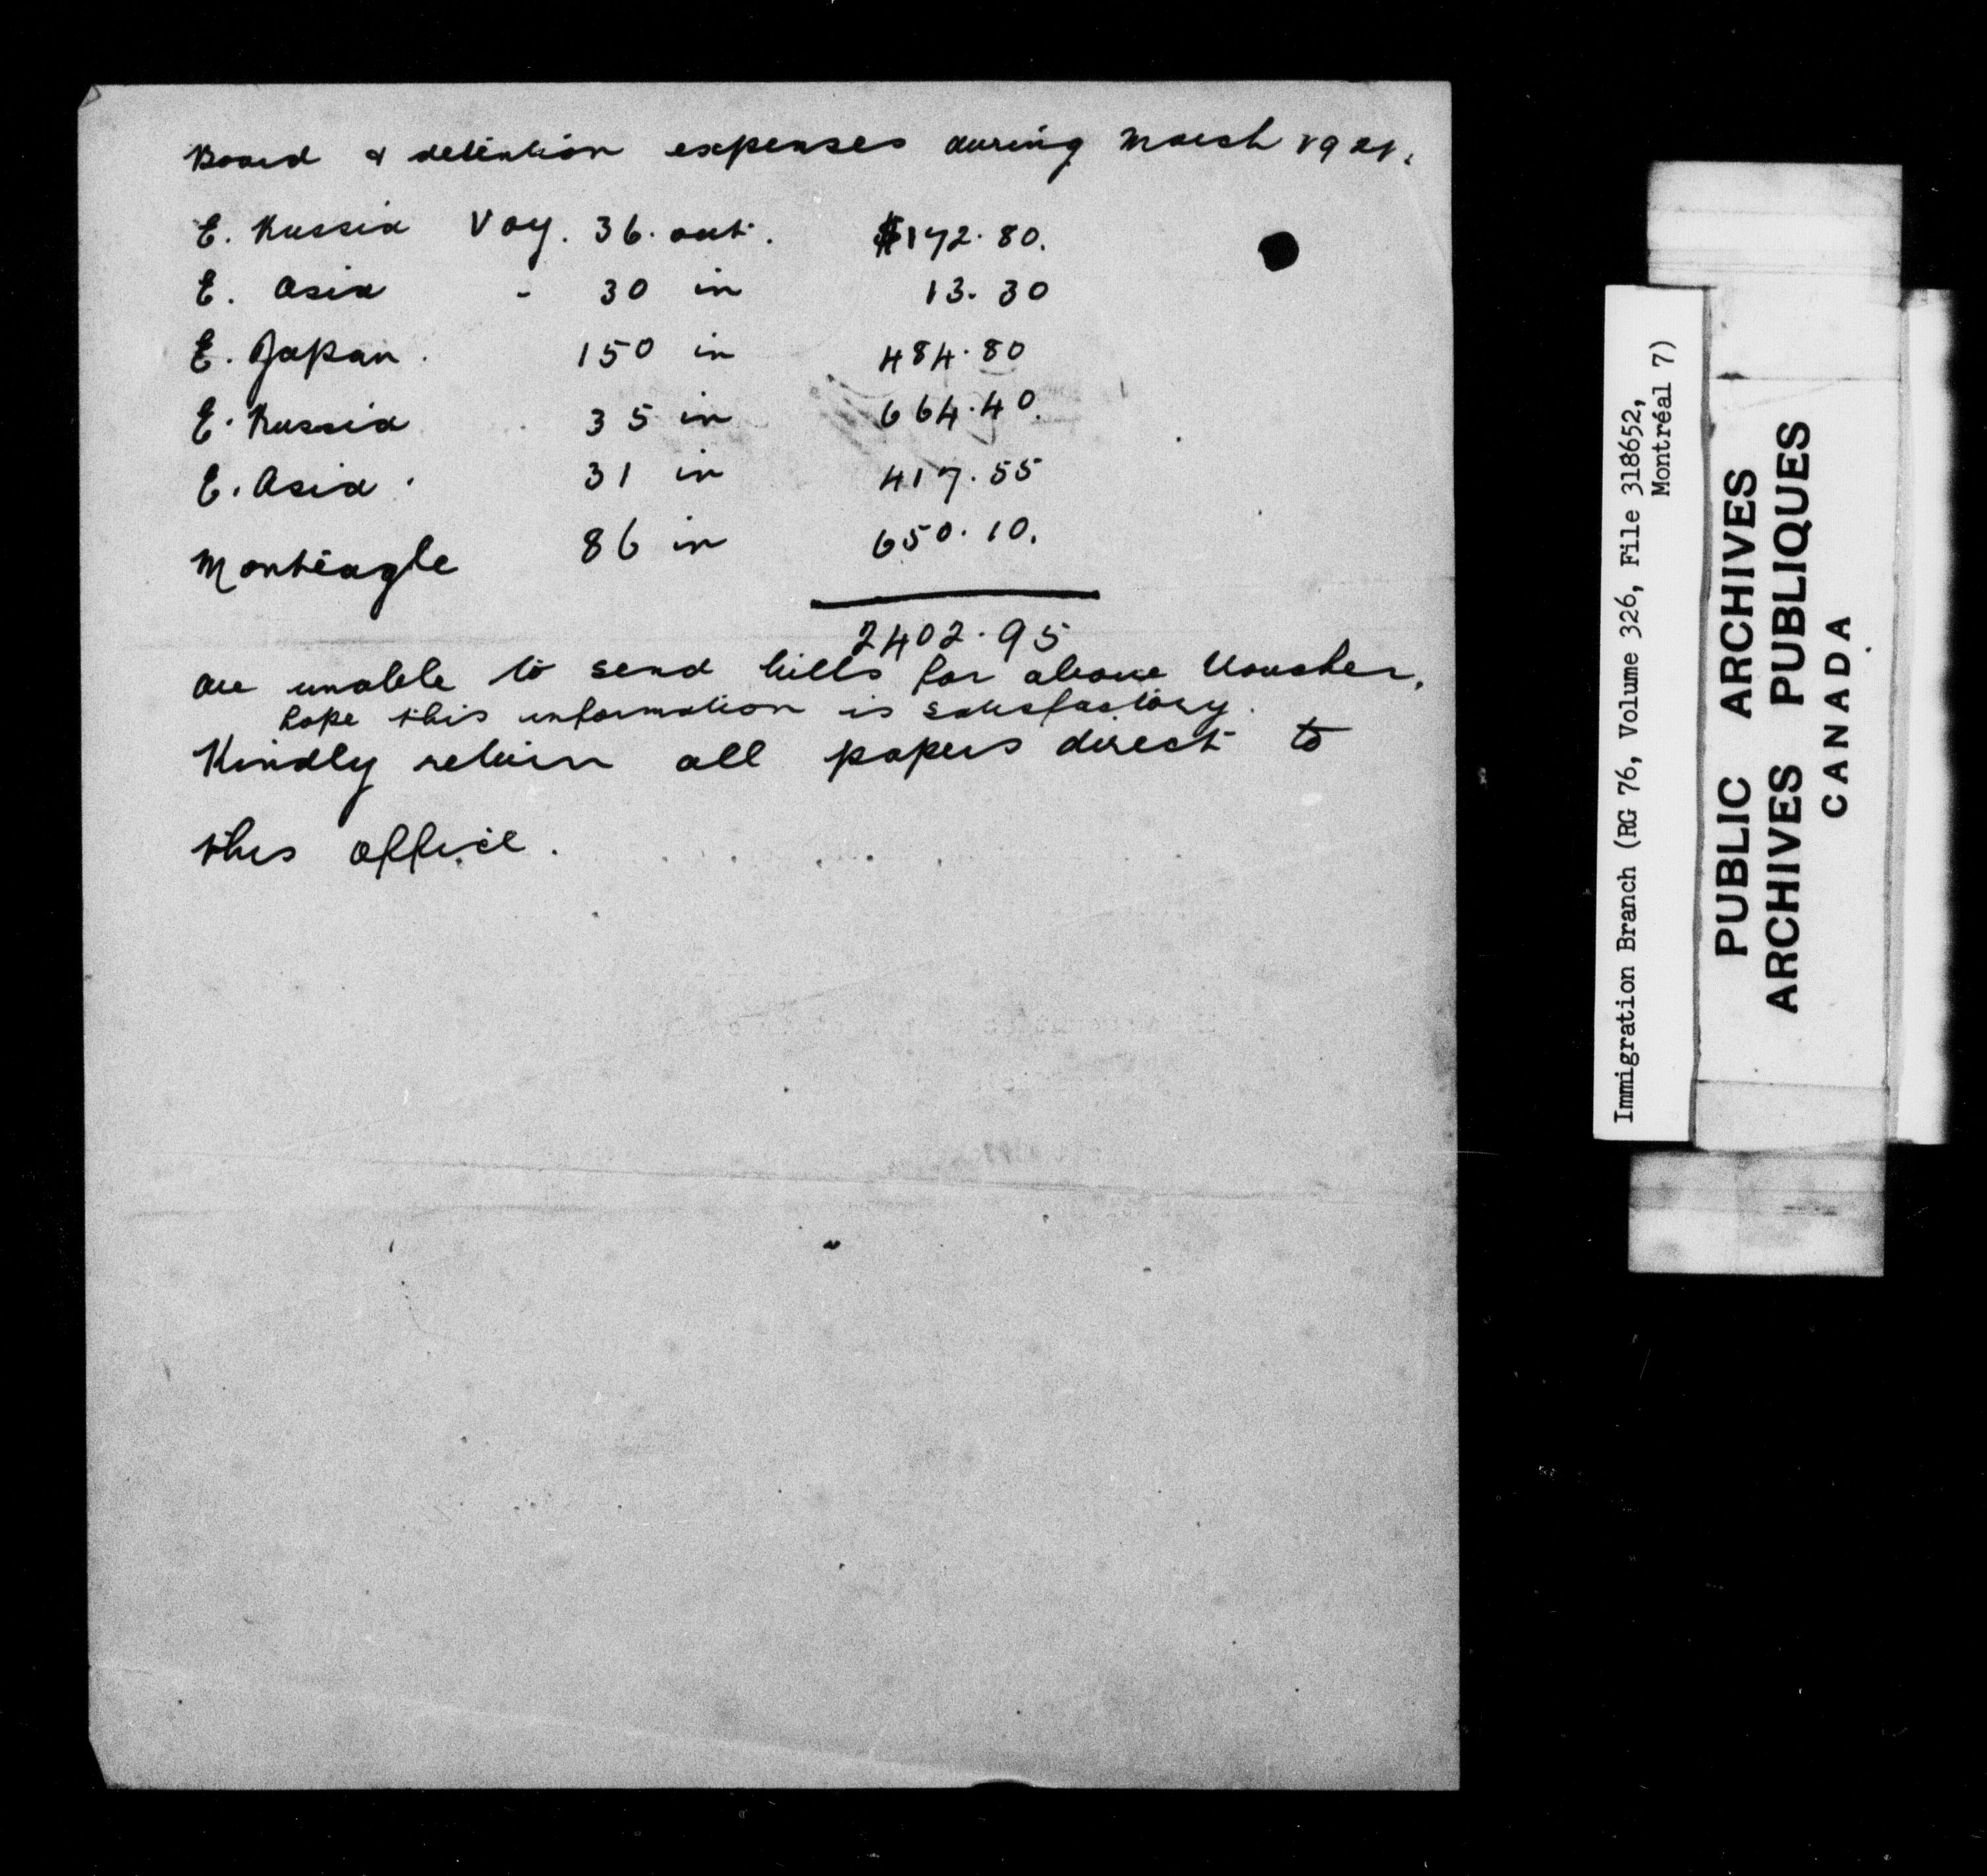 Board & detention expenses during March 1921.
E. Russia Voy. 36. out. $172.80.
E. Asia - 30 in 13.30
E. Japan. 150 in 484.80
E. Russia 35 in 664.40.
E. Asia. 31 in 417.55
Monteagle 86 in 650.10.
2402.95
are unable to send bills for above Voucher,
hope this information is satisfactory.
Kindly return all papers direct to
this office.
Immigration Branch (RG 76, Volume 326, File 318652,
Montréal 7)
PUBLIC ARCHIVES
ARCHIVES PUBLIQUES
CANADA